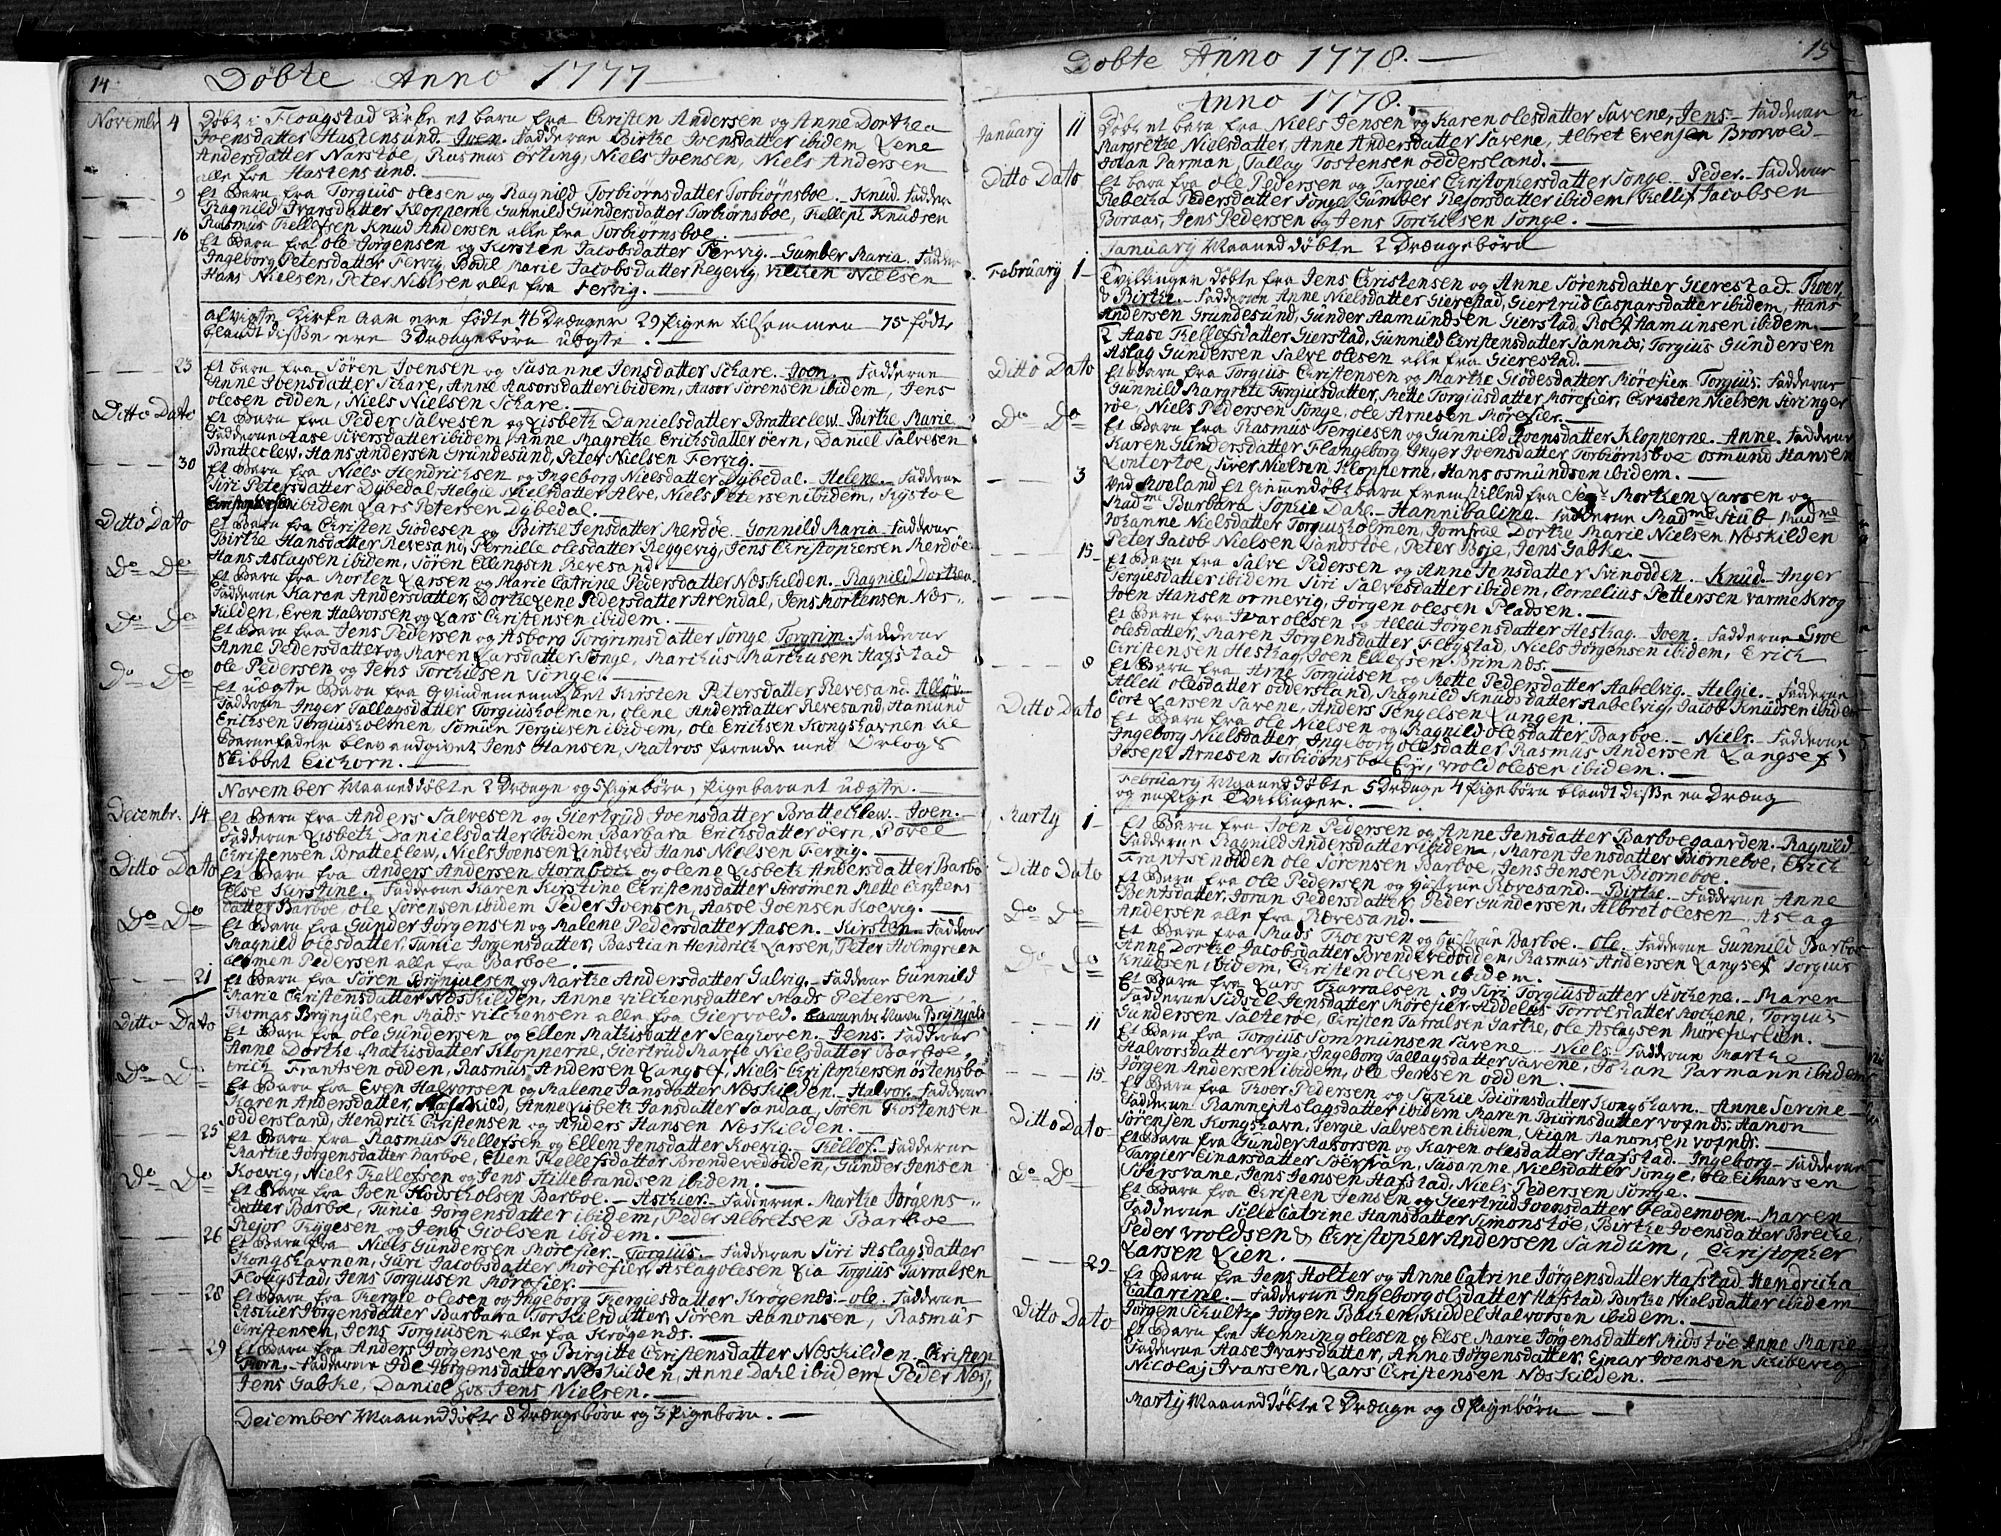 14
Döbte Anno 1777
November 4 Döbt i Flougstad Kirke et barn fra Christen Andersen og Anne Dorthea
Joensdatter Hastensund. Joen. Fadderne Birthe Joensdatter ibidem Lene
Andersdatter Narstöe, Rasmus Örting, Niels Joensen, Niels Andersen
alle fra Hastensund.
9 Et Barn fra Torgius olesen og Ragnild Torbiörnsdatter Torbiörnsboe. Knud. Fadderne
Ragnild Ivarsdatter Klopperne Gunnild Gundersdatter Torbiörnsboe, Kellef Knudsen
Rasmus Kellefsen Knud Andersen alle fra Torbiörnsboe.
16 Et Barn fra Ole Jörgensen og Kirsten Jacobsdatter Fervig. Gumber Maria. Fadderne
Ingeborg Petersdatter Fervig, Bodil Marie Jacobsdatter Regevig, Nielsen
Hans Nielsen, Peter Nielsen alle fra Fervig.
Kirke Aar ere födte 46 Drænger 29 Piger tilsammen 75 födte
blandt disse ere 3 Drængebörn uægte.
23 Et barn fra Sören Joensen og Susanne Jensdatter Schare. Joen. Fadderne
Anne Joensdatter Schare, Anne Aasorsdatter ibidem, Aasor Sörensen ibidem, Jens
olesen odden, Niels Nielsen Schare.
Ditto Dato Et Barn fra Peder Salvesen og Lisbeth Danielsdatter Bratteclew. Birthe Marie
Fadderne Aase Siversdatter ibidem, Anne Magrethe Erichsdatter öern, Daniel Salvesen
Bratteclew, Hans Andersen Grundesund, Peter Nielsen Fervig.
30 Et Barn fra Niels Hendrichsen og Ingeborg Nielsdatter Dybedal. Helene. Fadderne
Siri Petersdatter Dybedal Helgie Nielsdatter Alve, Niels Petersen ibidem,
Christophersen ibidem Lars Petersen Dybedal.
Ditto Dato Et Barn fra Christen Giödesen og Birthe Jensdatter Merdöe. Gonnild Maria. Fadderne
Birthe Hansdatter Revesand, Pernille olesdatter Reggevig, Jens Christophersen Merdöe
Hans Aslagsen ibidem, Sören Ellingsen Revesand.
Do Do Et Barn fra Morten Larsen og Marie Catrine Pedersdatter Næskilden. Ragnild Dorthea.
Fadderne Karen Andersdatter, Dorthe Lene Pedersdatter Arendal, Jens Mortensen Næs-
Kilden, Even Halvorsen og Lars Christensen ibidem.
Do Do Et Barn fra Jens Pedersen og Asborg Torgrimsdatter Songe Torgrim. Fadderne
Anne Pedersdatter og Maren Larsdatter Songe, Marchus Marchusen Hafstad
ole Pedersen og Jens Torchelsen Songe.
Do Do Et uægte Barn fra Qvindemennisket Kirsten Petersdatter Revesand.
Fadderne Inger Tallagsdatter Torgiusholmen, olene Andersdatter Revesand Aamund
Erichsen Torgiusholmen, Somun Tergiesen ibidem, ole Erichsen Kongshavnen til
Barnefader blev angivet Jens Hansen, Matros farende med Orlogs
Skibbet Eichorn.
November Maaned döbte 2 Drænge og 5 Pigebörn, Pigebarnet uægte.
Decembr. 14 Et Barn fra Anders Salvesen og Giertrud Joensdatter Bratteclew. Joen.
Fadderne Lisbeth Danielsdatter ibidem Barbara Erichsdatter öern, Povel
Christensen Bratteclew, Niels Joensen Lindtved Hans Nielsen Fervig.
Ditto Dato Et Barn fra Anders Andersen Hornbech og olene Lisbeth Andersdatter Barboe
Else Kirstine. Fadderne Karen Kirstine Christensdatter Strömen Mette Christens
datter Barboe, ole Sörensen ibidem Peder Joensen, Aasol Joensen Koevig.
Do Do Et Barn fra Gunder Jörgensen og Malene Pedersdatter Aasen. Kirsten. Fadderne
Ragnild olesdatter, Tunie Jörgensdatter, Bastian Hendrich Larsen, Peter Holmgreen
Pedersen alle fra Barboe.
21 Et Barn fra Sören Brynjulsen og Marthe Andersdatter Salvig. Fadderne Gunnild
Marie Christensdatter Næskilden, Anne Vilchensdatter Mads Petersen
Thomas Brynjulsen Mads Vilchensen alle fra Giervold. Barnets Navn Brynjul
Ditto Dato Et Barn fra ole Gundersen og Ellen Mathisdatter Seashoven. Jens. Fadderne
Anne Dorthe Mathisdatter Klopperne, Giertrud Marie Nielsdatter Barboe
Erich Frantsen odden, Rasmus Andersen Langsef, Niels Christophersen östensbö
Do Do Et Barn fra Even Halvorsen og Malene Jansdatter Næskilden. Halvor. Fadderne
Karen Andersdatter, Næskild, Anne Lisbeth Jansdatter Sandaa, Sören Tostensen
oddersland, Hendrich Christensen og Anders Hansen Næskilden.
25 Et Barn fra Rasmus Kellefsen og Ellen Jensdatter Koevig. Kellef. Fadderne
Marthe Jörgensdatter Barboe, Ellen Kellefsdatter Brendevedodden, Gunder Jensen
Koevig, Niels Kellefsen og Jens Hillebrandsen ibidem.
Do Do Et Barn fra Joen Barboe. Aschier. Fadderne Marthe Jörgens-
datter Barboe, Tunie Jörgensdatter ibidem, Peder Albretsen Barboe
Rejor Tygesen og Jens Giolsen ibidem.
26 Et Barn fra Niels Gundersen Möresier. Torgius. Fadderne Siri Aslagsdatter
Kongshavnen, Guri Jacobsdatter Möresier, Aslag olesen Lia Torgius Tarralsen
Flougstad, Jens Torgiusen Möresier.
28 Et Barn fra Tergie olesen og Ingeborg Tergiesdatter Krögenes. ole. Fadderne
Aschier Jörgensdatter Barbara Torkilsdatter, Sören Aanonsen, Rasmus
Christensen, Jens Torgiusen alle fra Krögends.
29 Et Barn fra Anders Jörgensen og Birgitte Christensdatter Næskilden. Christen
Torn. Fadderne Ide Jörgensdatter Næskilden, Anne Dahl ibidem Peder Næs,
Jens Gabke, Daniel Jens Nielsen.
December Maaned döbte 8 Drængebörn og 3 Pigebörn.
15
Döbte Anno 1778.
Anno 1778.
January 11 Döbt et barn fra Niels Jensen og Karen olesdatter Savene, Jens. Fadderne
Margrethe Nielsdatter, Anne Andersdatter Savene, Albret Evensen Brovold
Johan Parman, Tallag Tostensen oddersland.
Ditto Dato Et barn fra ole Pedersen og Targier Christophersdatter Songe. Peder. Fadderne
Rebecha Pedersdatter Songe Gumber Rejorsdatter ibidem, Kellef Jacobsen
Boraas, Jens Pedersen og Jens Torchelsen Songe.
January Maaned döbte 2 Drængebörn
February 1 Tvillinger döbte fra Jens Christensen og Anne Sörensdatter Gierestad. Thoer
& Birthe. Fadderne Anne Nielsdatter Gierestad, Giertrud Caspersdatter ibidem, Hans
Andersen Grundesund, Gunder Aamundsen Gierstad, Rolf Aamunsen ibidem.
2 Aase Kellefsdatter Gierstad, Gunnild Christensdatter Sannes, Torgius Gundersen
Aslag Gundersen Salve olesen alle fra Gierestad.
Ditto Dato Et barn fra Torgius Christensen og Marthe Giödesdatter Möresier Torgius. Fadderne
Gunnild Margrete Torgiusdatter, Mette Torgiusdatter Möresier, Christen Nielsen Stringer
röe, Niels Pedersen Songe, ole Arnesen Möresier.
Do Do Et Barn fra Rasmus Tergiesen og Gunnild Joensdatter Klopperne. Anne. Fadderne
Karen Gundersdatter Flangeborg Inger Joensdatter Torbiörnsboe osmund Hansen
Lontertoe, Siver Nielsen Klopperne, Hans osmundsen ibidem.
3 Ved Moeland Et hiemmedöbt barn fremstilled fra Segr. Morthen Larsen og
Madme Barbara Sophie Dahl. Hannibaline. Fadderne Madme Stub Madme
Johanne Nielsdatter Torgiusholmen, Jomfrue Dorthe Marie Nielsen Næskilden
Peter Jacob Nielsen Sandstöe, Peter Boje, Jens Gabke.
15 Et Barn fra Salve Pedersen og Anne Jensdatter Svinodden. Knud. Inger
Tergiesdatter ibidem Siri Salvesdatter ibidem, Cornelius Pettersen varmekrog
Joen Hansen ormevig, Jörgen olesen Pladsen.
Et Barn fra Ivar olesen og Alleu Jörgensdatter Heshag. Joen. Fadderne Groe
olesdatter, Maren Jörgensdatter Flougstad, Niels Jörgensen ibidem, Erich
Christensen Heshag, Joen Ellefsen Brimnes.
8 Et Barn fra Arne Torgiusen og Mette Pedersdatter Aabelvig. Helgie. Fadderne
Alleu olesdatter odderstand, Ragnild Knudsdatter Aabelvig, Jacob Knudsen ibidem
Cort Larsen Savene, Anders Jengelsen Langen.
Ditto Dato Et Barn fra ole Nielsen og Ragnild olesdatter Barboe. Niels. Fadderne
Ingeborg Nielsdatter, Ingeborg olesdatter, Rasmus Andersen Langsef
Joseph Arnesen Torbiörnsboe Eje, vrold olesen ibidem.
February Maaned döbte 5 Drænge 4 Pigebörn blandt disse en Dræng
og en Pige Tvillinger.
Marty 1 Et Barn fra Joen Pedersen og Anne Jensdatter Barboegaarden. Ragnild
Fadderne Ragnild Andersdatter ibidem, Maren Jensdatter Biörneboe, Erich
Frantsen odden ole Sörensen Barboe, Jens Jensen Biörneboe.
Ditto Dato Et Barn fra ole Pedersen og Hustrue Revesand. Birthe. Fadderne Anne
Bentsdatter, Joran Pedersdatter, Peder Gundersen, Albret olesen Aslag
Andersen alle fra Revesand.
Do Do Et Barn fra Mads Thoersen og Hustrue Barboe. ole. Fadderne Gunnild Barboe
Anne Dorthe Jacobsdatter Brendevedodden, Rasmus Andersen Langsef Torgius
Knudsen ibidem, Christen olesen ibidem.
Do Do Et Barn fra Lars Tarralsen og Siri Torgiusdatter Kochene. Maren
Fadderne Sidsel Jensdatter Möresier, Addelus Torrolsdatter Kochene, Torgius
Gundersen Salteröe, Christen Tarralsen Garthe, ole Aslagsen Möresierlien.
11 Et Barn fra Torgius Sommunsen Savene Niels. Fadderne Marthe
Halvorsdatter voje, Ingeborg Tallagsdatter Savene, Johan Parmann ibidem
Jörgen Andersen ibidem, ole Jensen odden.
15 Et Barn fra Thoer Pedersen og Sophie Biörnsdatter Kongshavn. Anne Serine.
Fadderne Rannei Aslagsdatter ibidem Maren Biörnsdatter vognds. Aanon
Sörensen Kongshavn, Tergie Salvesen ibidem, Stian Aanonsen vognds.
Ditto Dato Et Barn fra Gunder Aasorsen og Karen olesdatter Hafstad. Ingeborg. Fadderne
Targier Einarsdatter Sbersvan, Susanne Nielsdatter Songe, ole Einarsen
Sbersvane, Jens Jensen Hafstad, Niels Pedersen Songe.
Do Do Et Barn fra Christen Jensen og Giertrud Joensdatter Flademoen. Maren
Fadderne Sille Catrine Hansdatter Simonstöe, Birthe Joensdatter Breche,
Peder Vroldsen & Christopher Andersen Sandum, Christopher
Larsen Lien.
29 Et Barn fra Jens Holter og Anne Catrine Jörgensdatter Hafstad Hendricha
Catarine. Fadderne Ingeborg olsdatter Hafstad, Birthe Nielsdatter ibidem
Jörgen Schultz Jörgen Bachen, Kiddel Halvorsen ibidem.
Ditto Dato Et Barn fra Henning olesen og Else Marie Jörgensdatter Midstöe Anne Marie
Fadderne Aase Ivarsdatter, Anne Jörgensdatter, Ejnar Joensen Schibevig
Nicolaj Ivarsen, Lars Christensen Næskilden.
Marty Maaned döbte 2 Drænge og 8 Pigebörn